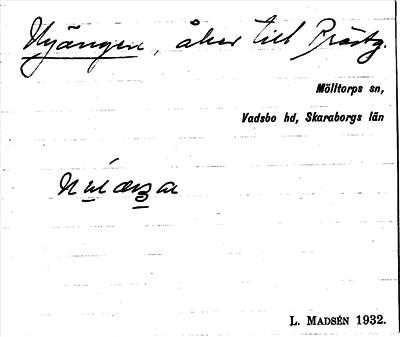 Nyängen, åker till Prästg.
Mölltorps sn,
Vadsbo hd, Skaraborgs län
L. MADSÉN 1932.